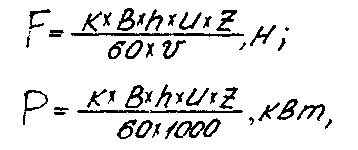 F = К×В×h×U×Z / 60×υ, Н;
P = К×В×h×U×Z / 60×1000, кВт,